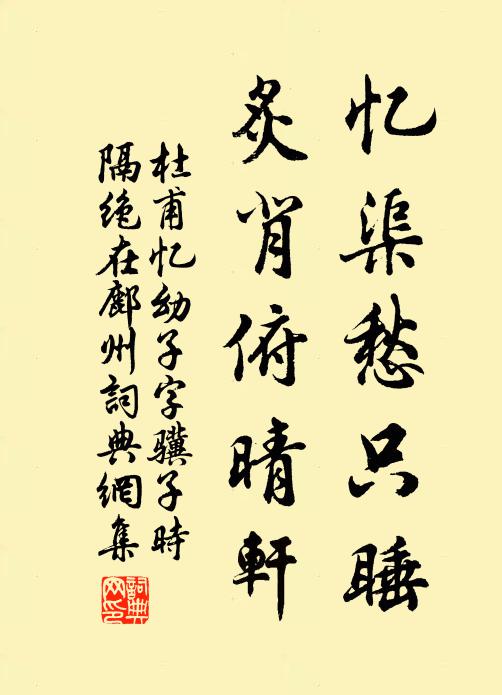 忆渠愁只睡
炙背俯晴軒
杜甫忆幼子字骥子時
隔绝在鄜州詞典網集
詞典网印